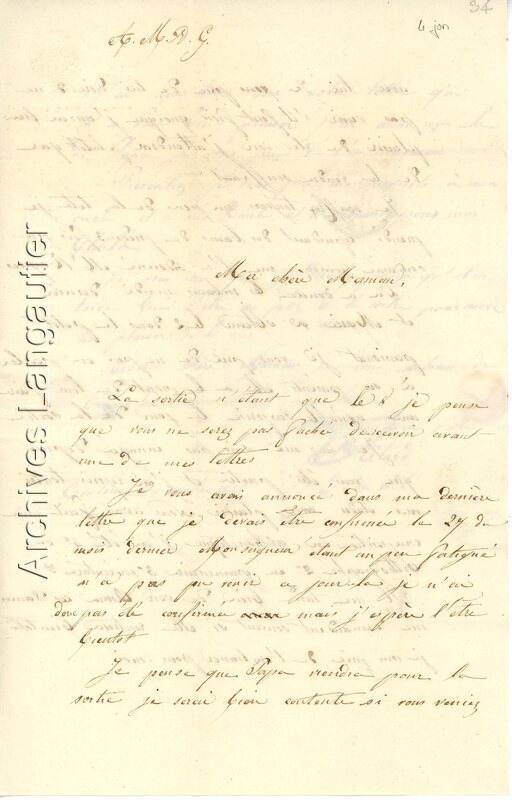 34
4 jan
A. M. D. G.
Ma chère Maman,
La sortie n'étant que le 8 je pense
que vous ne serez pas faché de recevoir avant
une de mes lettres
Je vous avais annoncé dans ma dernière
lettre que je devais être confirmée le 27 du
mois dernier Monseigneur étant un peu fatigué
n a pas pu venir a jour la je n'ai
donc pas été confirmé mais j'espère l'être
bientot
Je pense que Papa viendra pour la
sortie je serai bien contente si vous veniez
Archives Langautier